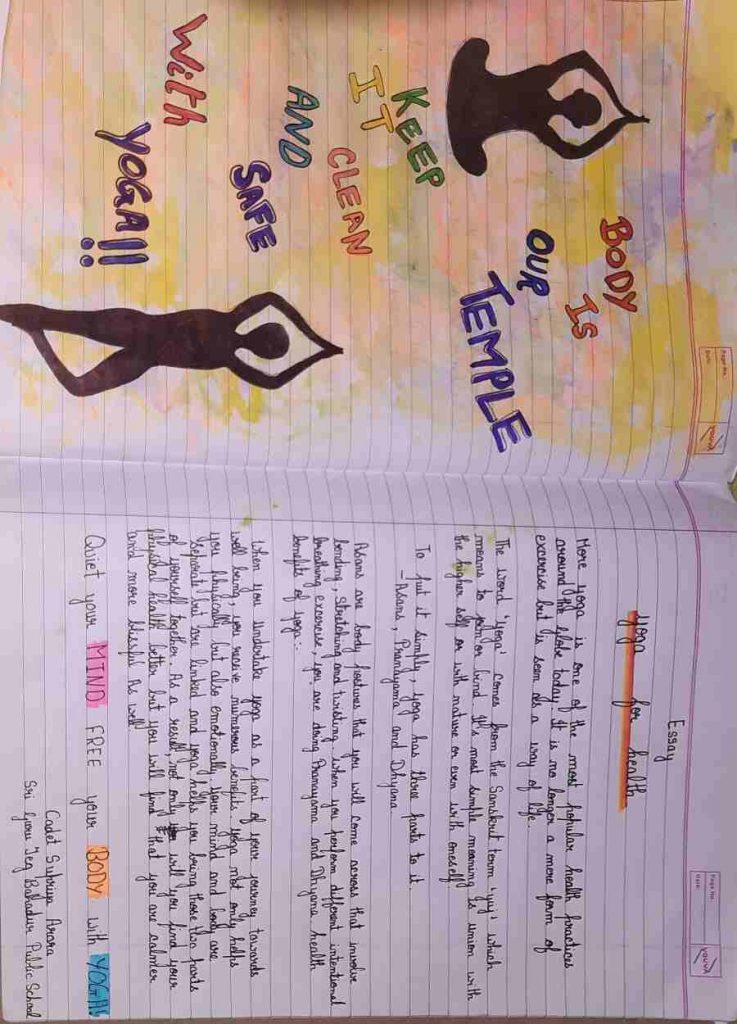 BODY
IS
OUR
TEMPLE
KEEP
IT
CLEAN
AND
SAFE
With
YOGA!!
Page No.
Date:
youva
Page No.
Date:
youva
Essay
Yoga for health
More yoga is one of the most popular health practices
around the globe today. It is no longer a mere form of
exercise but is seen as a way of life.
The word 'yoga' comes from the Sanskrit term 'yuj' which
means to join or bind. It's most simple meaning is union with
the higher self or with nature or even with oneself
To put it simply, yoga has three parts to it.
-Asans, Pranlayama and Dhyana.
Asans are body postures that you will come across that involve
bending, stretching and twisting. When you perform different intentional
breathing excercise, you are doing Pranayama and Dhyana. health
benefits of yoga:-
When you undertake yoga as a part of your journey towards
well being, you receive numerous benefits. Yoga not only helps
you physically but also emotionally. your mind and body are
separate but are linked and yoga helps you bring those two parts
of yourself together. As a result, not only will you find your
physical health better but you will find that you are calmer
and more blissful As well
Quiet your MIND FREE your BODY with YOGA!!
Cadet Supriya Arora
Sri Guru Teg Bahadur Public School